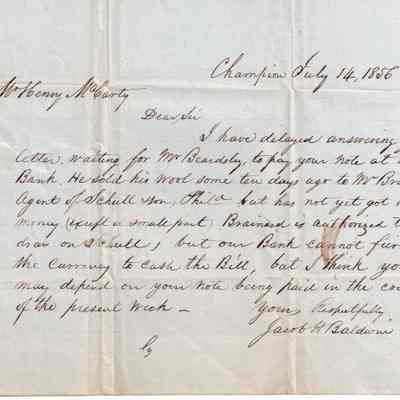 Champion July 14, 1856
Mr Henry McCarty
Dear Sir
I have delayed answering
letter, waiting for Mr Beardsly, to pay your note at
Bank. He sold his wool some ten days ago to Mr
Agent of Schull & Son, Phila but has not yet got
money (except a small part) Brainard is authorized
draw on Schull, but our Bank cannot
the currency to cash the Bill, but I think
may depend on your note being paid in the
of the present week –
Yours Respectfully
Jacob H Baldwin